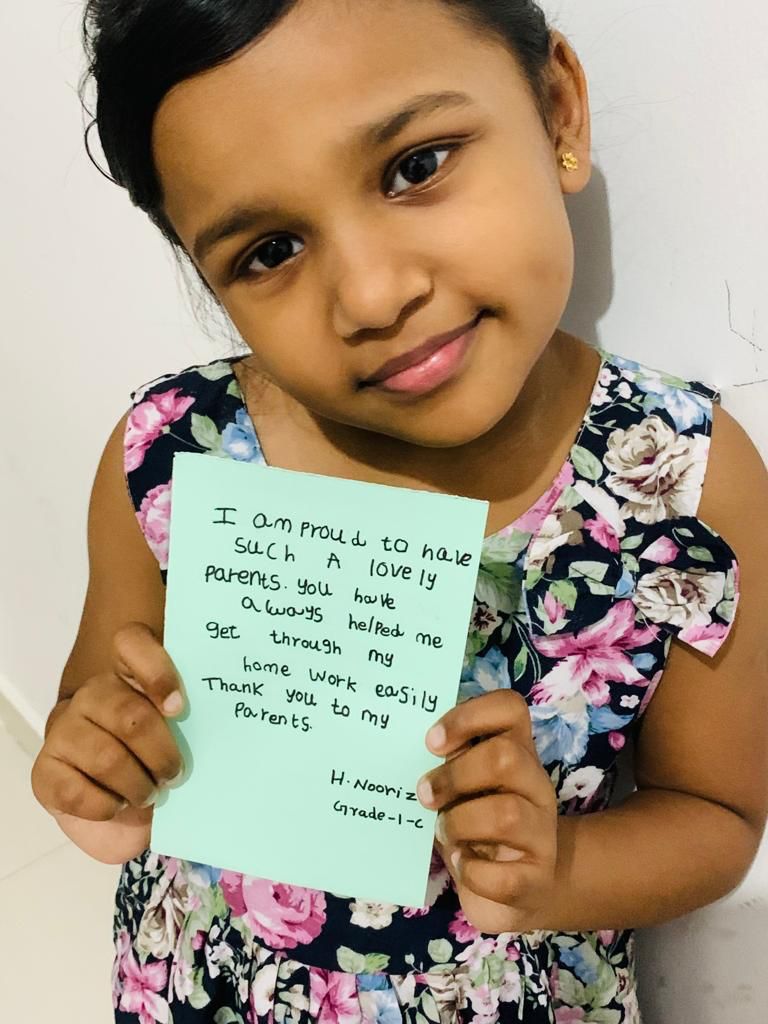 I am proud to have
such A lovely
parents. you have
always helped me
get through my
home work easily
Thank you to my
parents.
H. Nooriz
Grade-1-C